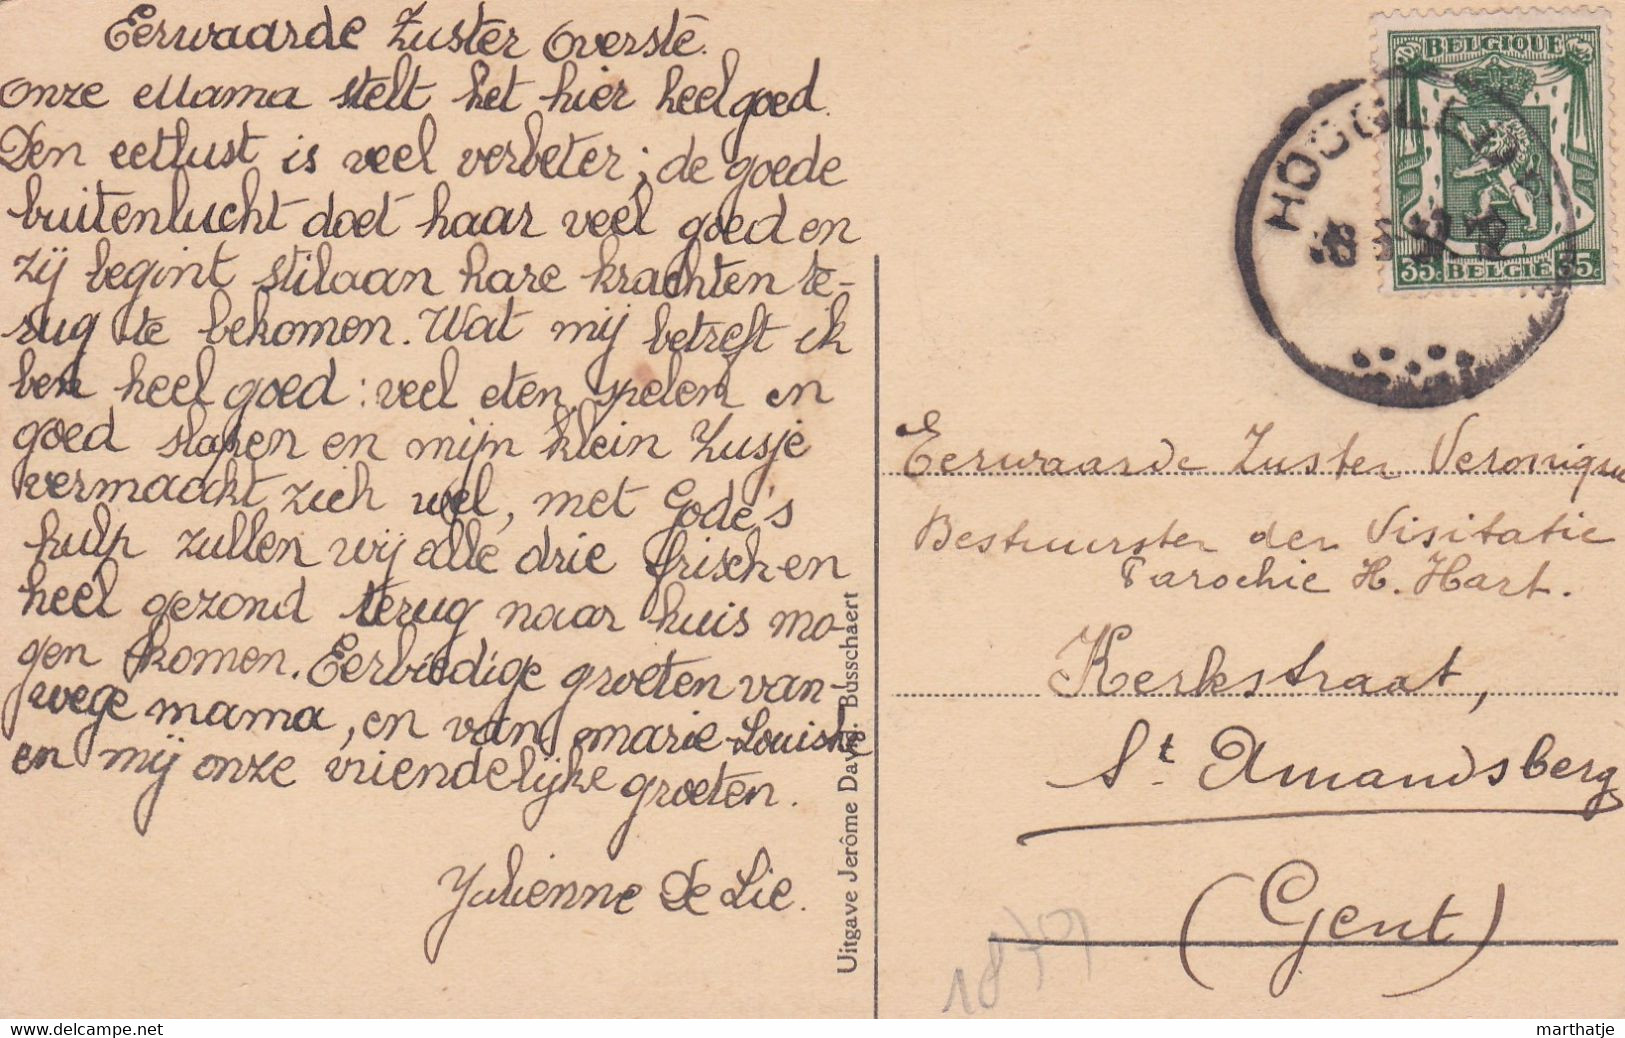 Eerwaarde Zuster Overste.
Onze Mama stelt het hier heel goed.
Den eetlust is veel verbeter; de goede
buitenlucht doet haar veel goed en
zij begint stilaan hare krachten te-
rug te bekomen. Wat mij betreft ik
ben heel goed: veel eten, spelen en
goed slapen en mijn klein Zusje
vermaakt zich wel, met Gode's
hulp zullen wij alle drie frisch en
heel gezond terug naar huis mo-
gen komen. Eerbiedige groeten van-
wege mama, en van Marie-Louiske
en mij onze vriendelijke groeten.
Julienne De Lie.
Uitgave Jerôme Davïg. Busschaert
BELGIQUE
35c BELGIË 35c
HOOGLEDE
Eerwaarde Zuster Veronique
Bestuurster der Visitatie
Parochie H. Hart.
Kerkstraat,
St Amandsberg
(Gent)
marthatje
www.delcampe.net